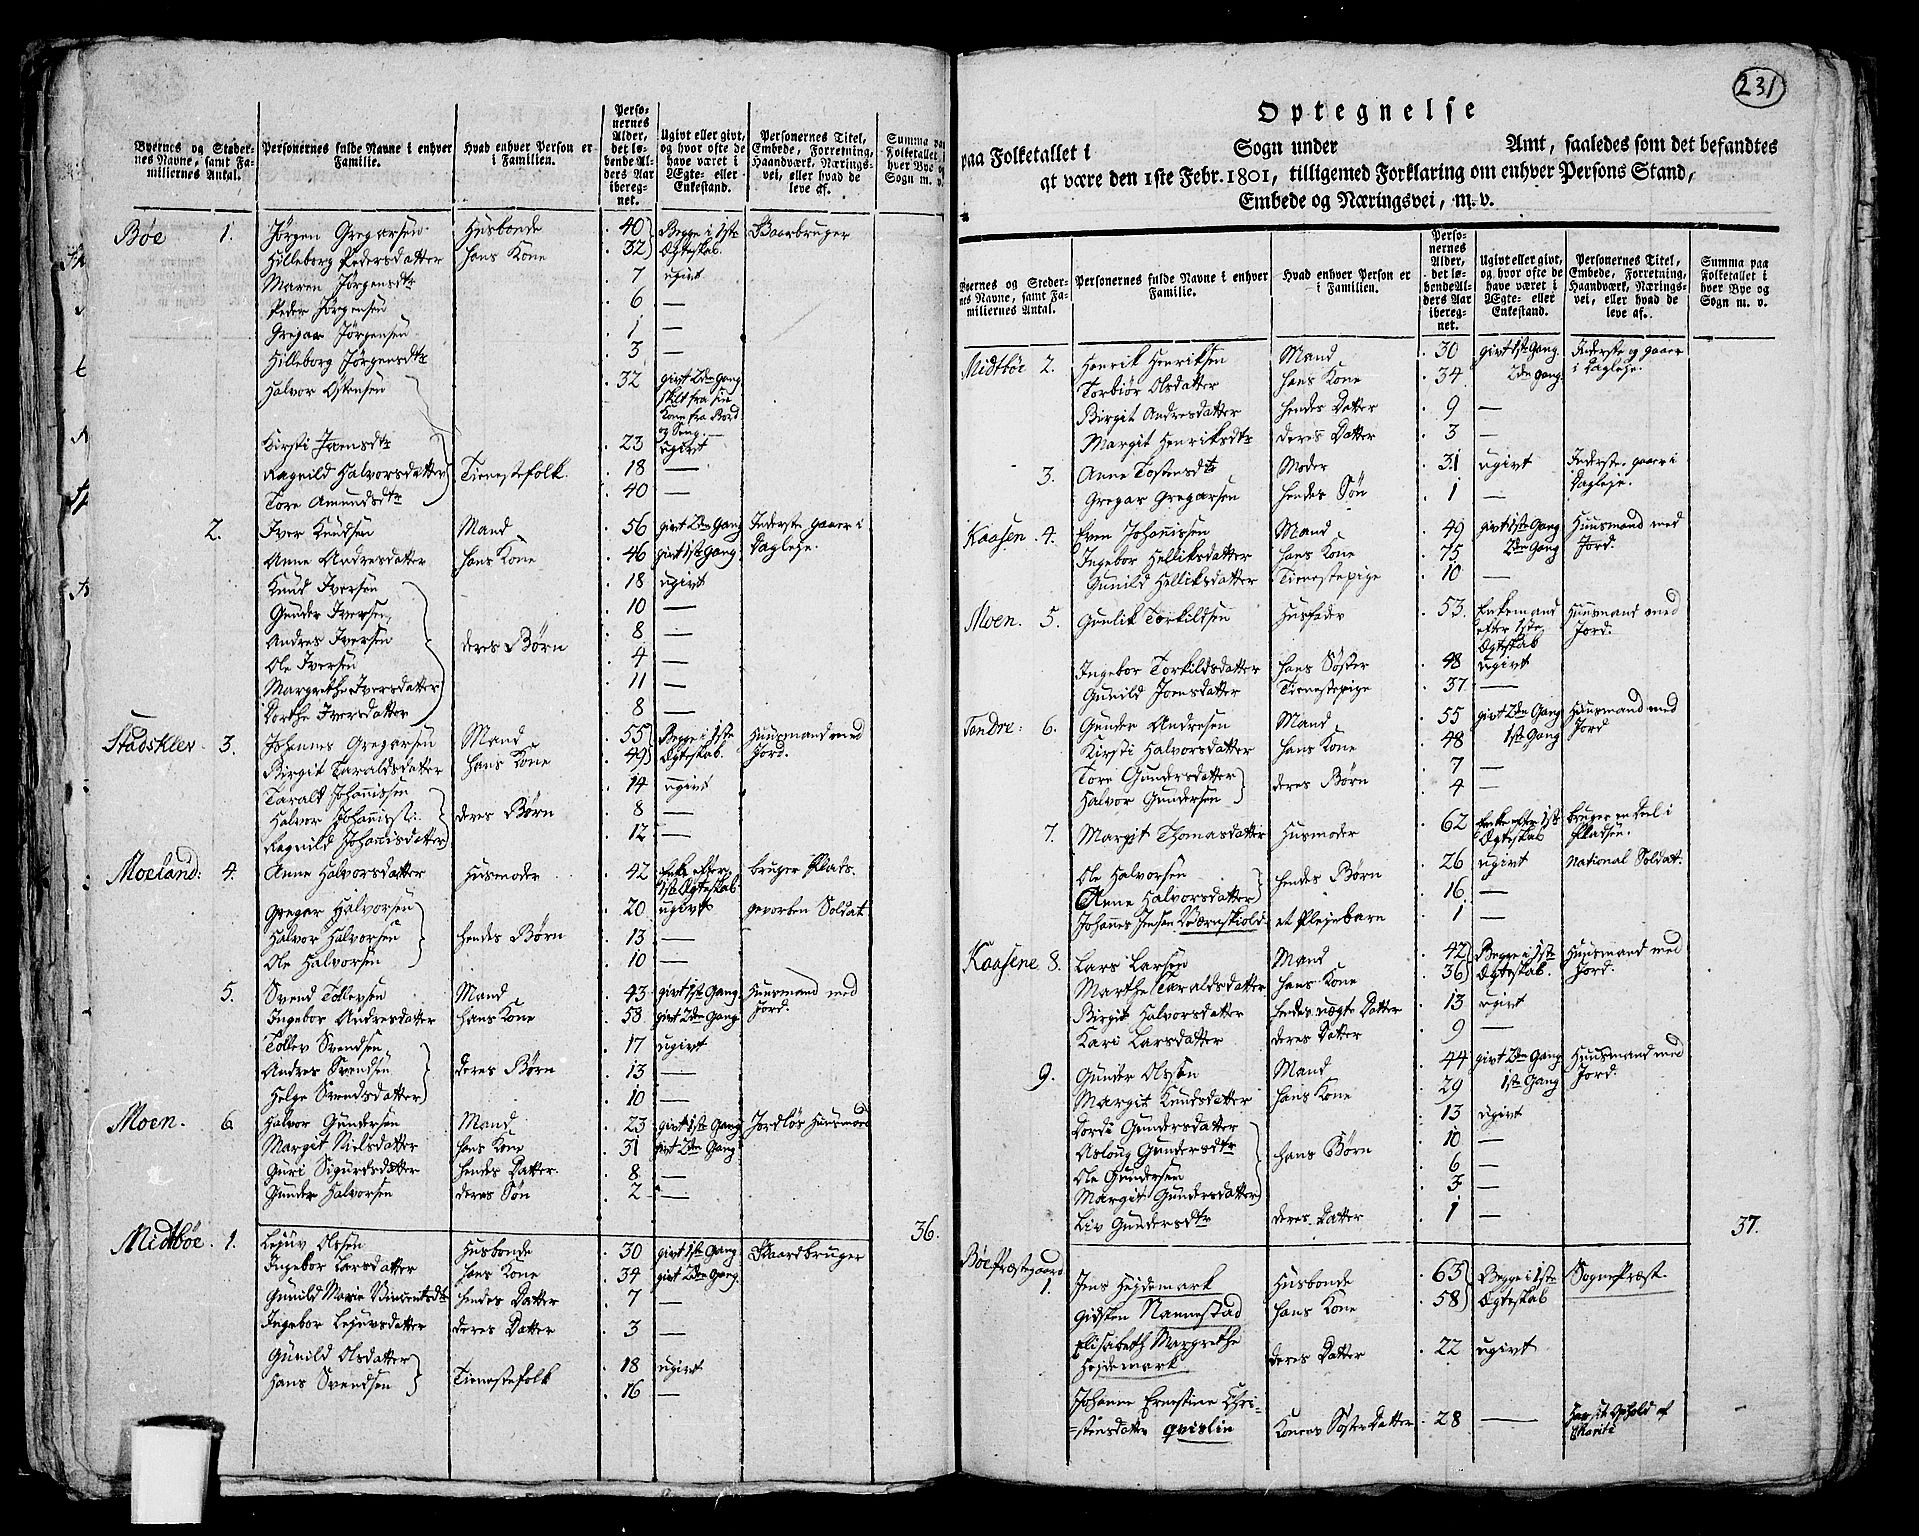 Byernes og Steder-
nes Navne, samt Fa-
miliernes Antal.
Personernes fulde Navne i enhver
Familie.
Hvad enhver Person er
i Familien.
Perso-
nernes
Alder,
det lø-
bende Al-
ders Aar
ibereg-
net.
Ugivt eller givt,
og hvor ofte de
have været i
Ægte- eller
Enkestand.
Personernes Titel,
Embede, Forretning,
Haandværk, Nærings-
vei, eller hvad de
leve af.
Summa paa
Folketallet i
hver Bye og
Sogn m. v.
Bøe 1. Jørgen Gregarsen Husbonde 40 Begge i 1ste Gaardbruger
Hilleborg Pedersdatter hans Kone 32 Ægteskab
Maren Jørgensdtr 7 ugivt
Peder Jørgensen 6 —
Gregar Jørgensen 1 —
Hilleborg Jørgensdtr 3 —
Halvor Østensen 32 givt 2den Gang
skilt fra sin
Kone fra Bord
og Seng
Kirsti Joensdtr 23 ugivt
Ragnild Halvorsdatter Tienestefolk 18 —
Tore Amundsdtr 40 —
2. Iver Knudsen Mand 56 givt 2den Gang Inderste gaaer i
Anne Andresdatter hans Kone 46 givt 1ste Gang Dagleje.
Knud Iversen 18 ugivt
Gunder Iversen 10 —
Andres Iversen deres Børn 8 —
Ole Iversen 4 —
Margrethe Iversdatter 11 —
Dorthe Iversdatter 8 —
Stadskler 3. Johannes Gregarsen Mand 55 Begge i 1ste Huusmand med
Birgit Taraldsdatter hans Kone 49 Ægteskab. Jord.
Taralt Johannissen 14 ugivt
Halvor Johanniss: deres Børn 8 —
Ragnild Johannisdatter 12 —
Moeland: 4. Anne Halvorsdatter Husmoder 42 Enke efter bruger Plads.
1ste Ægteskab
Gregar Halvorsen 20 ugivt gevorben Soldat
Halvor Halvorsen hendes Børn 13 —
Ole Halvorsen 10 —
5. Svend Tollevsen Mand 43 givt 1ste Gang Huusmand med
Ingebor Andresdatter hans Kone 58 givt 2den Gang Jord.
Tollev Svendsen 17 ugivt
Andres Svendsen deres Børn 13 —
Helge Svendsdatter 10 —
Moen. 6 Halvor Gundersen Mand 23 givt 1ste Gang Jordløs Huusmand
Margit Nielsdatter hans Kone 31 givt 2den Gang
Guri Sigurdsdatter hendes Datter. 8 —
Gunder Halvorsen deres Søn 2 —
36.
Midtbøe. 1. Lejuv Olsen Husbonde 30 givt 1ste Gang Gaardbruger
Ingebor Larsdatter hans Kone 34 givt 2den Gang.
Gunild Marie Vincentsdtr hendes Datter 7 —
Ingebor Lejuvsdatter deres Datter 3 —
Gunild Olsdatter Tienestefolk 18 ugivt
Hans Svendsen 16 —
231
Optegnelse
paa Folketallet i Sogn under Amt, saaledes som det befandtes
at være den 1ste Febr. 1801, tilligemed Forklaring om enhver Persons Stand,
Embede og Næringsvei, m. v.
Byernes og Steder-
nes Navne, samt Fa-
miliernes Antal.
Personernes fulde Navne i enhver
Familie.
Hvad enhver Person er
i Familien.
Perso-
nernes
Alder,
det lø-
bende Al-
ders Aar
ibereg-
net.
Ugivt eller givt,
og hvor ofte de
have været i
Ægte- eller
Enkestand.
Personernes Titel,
Embede, Forretning,
Haandværk, Nærings-
vei, eller hvad de
leve af.
Summa paa
Folketallet i
hver Bye og
Sogn m. v.
Midtbøe 2. Henrik Henriksen Mand 30 givt 1ste Gang Inderste og gaaer
Torbiør Olsdatter hans Kone 34 2den gang i Dagleje.
Birgit Andresdatter hendes Datter 9 —
Margit Henriksdtr deres Datter 3 —
3. Anne Tostensdtr Moder 31 ugivt Inderste. gaaer i
Gregar Gregarsen hendes Søn 1 — Dagleje.
Kaasen. 4. Even Johannissen Mand 49 givt 1ste Gang Huusmand med
Ingebor Helliksdatter hans Kone 75 2den Gang Jord.
Gunild Helliksdatter Tienestepige 10 —
Moen. 5. Gunlik Torkildsen Husfader 53. Enkemand Huusmand med
efter 1ste Jord.
Ægteskab
Ingebor Torkildsdatter hans Søster 48 ugivt
Gunild Joensdatter Tienestepige 37 —
Tandre: 6. Gunder Andresen Mand 55 givt 2den Gang Huusmand med
Kirsti Halvorsdatter hans Kone 48 1ste Gang Jord
Tore Gundersdatter deres Børn 7 —
Halvor Gundersen 4 —
7. Margit Thomasdatter Husmoder 62 Enke efter 1ste bruger en deel i
Ægteskab Pladsen.
Ole Halvorsen hendes Børn 26 ugivt National Soldat.
Anne Halvorsdatter 16 —
Johannes Jensen Værnskiold et Plejebarn 1 —
Kaasene 8. Lars Larsen Mand 42 Begge i 1ste Huusmand med
Marthe Taraldsdatter hans Kone 36 Ægteskab. Jord.
Birgit Halvorsdatter hendes uægte Datter 13 ugivt
Kari Larsdatter deres Datter 9 —
9. Gunder Olsen Mand 44 givt 2den Gang Huusmand med
Margit Knudsdatter hans Kone 29 1ste Gang Jord.
Dordi Gundersdatter 13 ugivt
Asloug Gundersdtr hans Børn 10 —
Ole Gundersen 6 —
Margit Gundersdatter 3 —
Liv Gundersdtr deres Datter 1 —
37.
Bøe Præstegaard
1. Jens Hejdemark Husbonde 63 Begge i 1ste SognePræst.
Gidsken Nannestad hans Kone 58 Ægteskab
Elisabeth Margrethe
Hejdemark deres Datter 22 ugivt
Johanne Ernestine Chri-
stensdatter Qvislin Konens Søster Datter 28 — har sit Ophold af
Charité